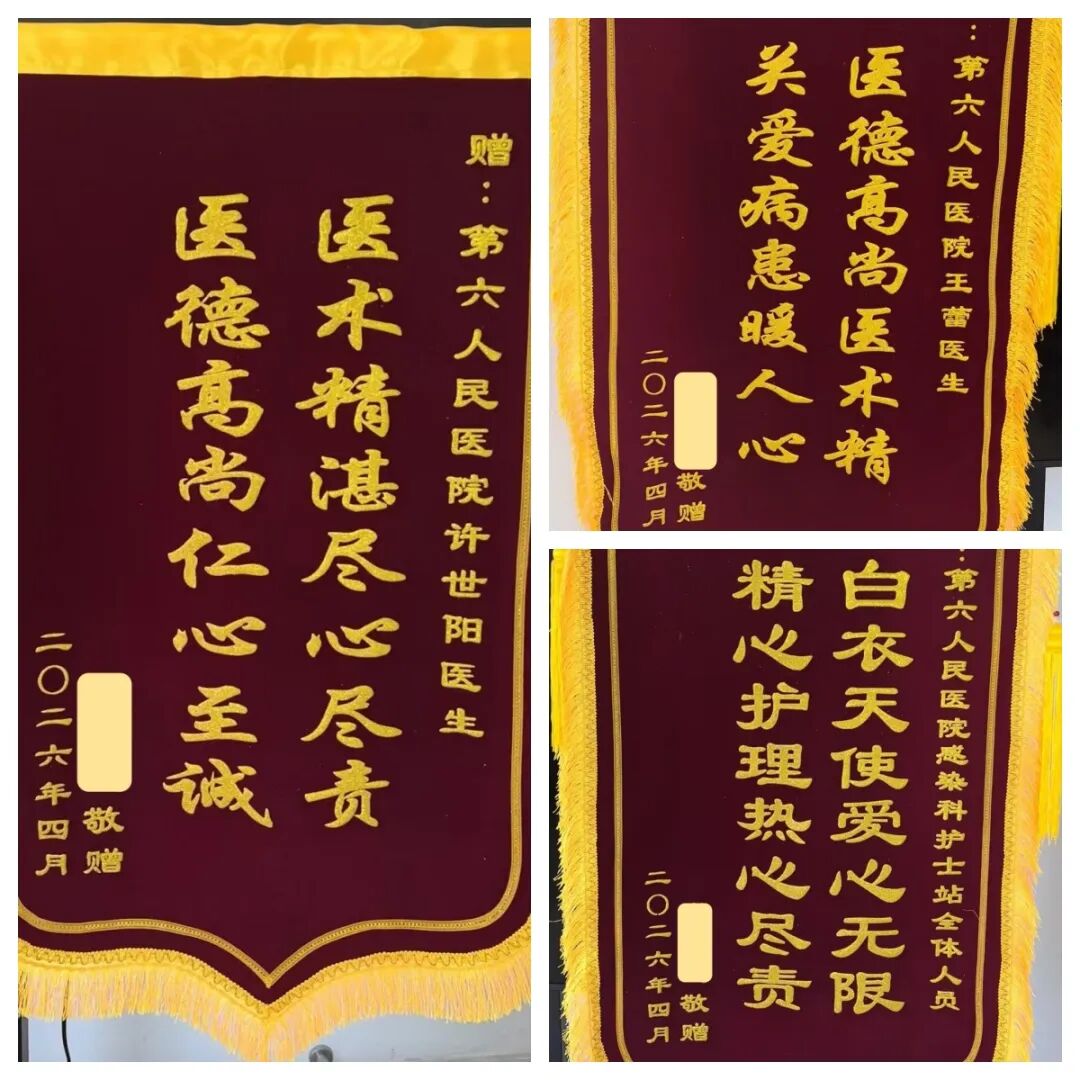 赠：第六人民医院许世阳医生
医术精湛尽心尽责
医德高尚仁心至诚
敬赠
二〇二六年四月
：第六人民医院王蕾医生
医德高尚医术精
关爱病患暖人心
敬赠
二〇二六年四月
：第六人民医院感染科护士站全体人员
白衣天使爱心无限
精心护理热心尽责
敬赠
二〇二六年四月